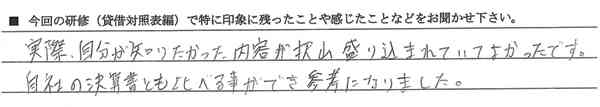 ■ 今回の研修（貸借対照表編）で特に印象に残ったことや感じたことなどをお聞かせ下さい。
実際、自分が知りたかった内容が沢山盛り込まれていてよかったです。
自社の決算書とも比べる事ができ参考になりました。